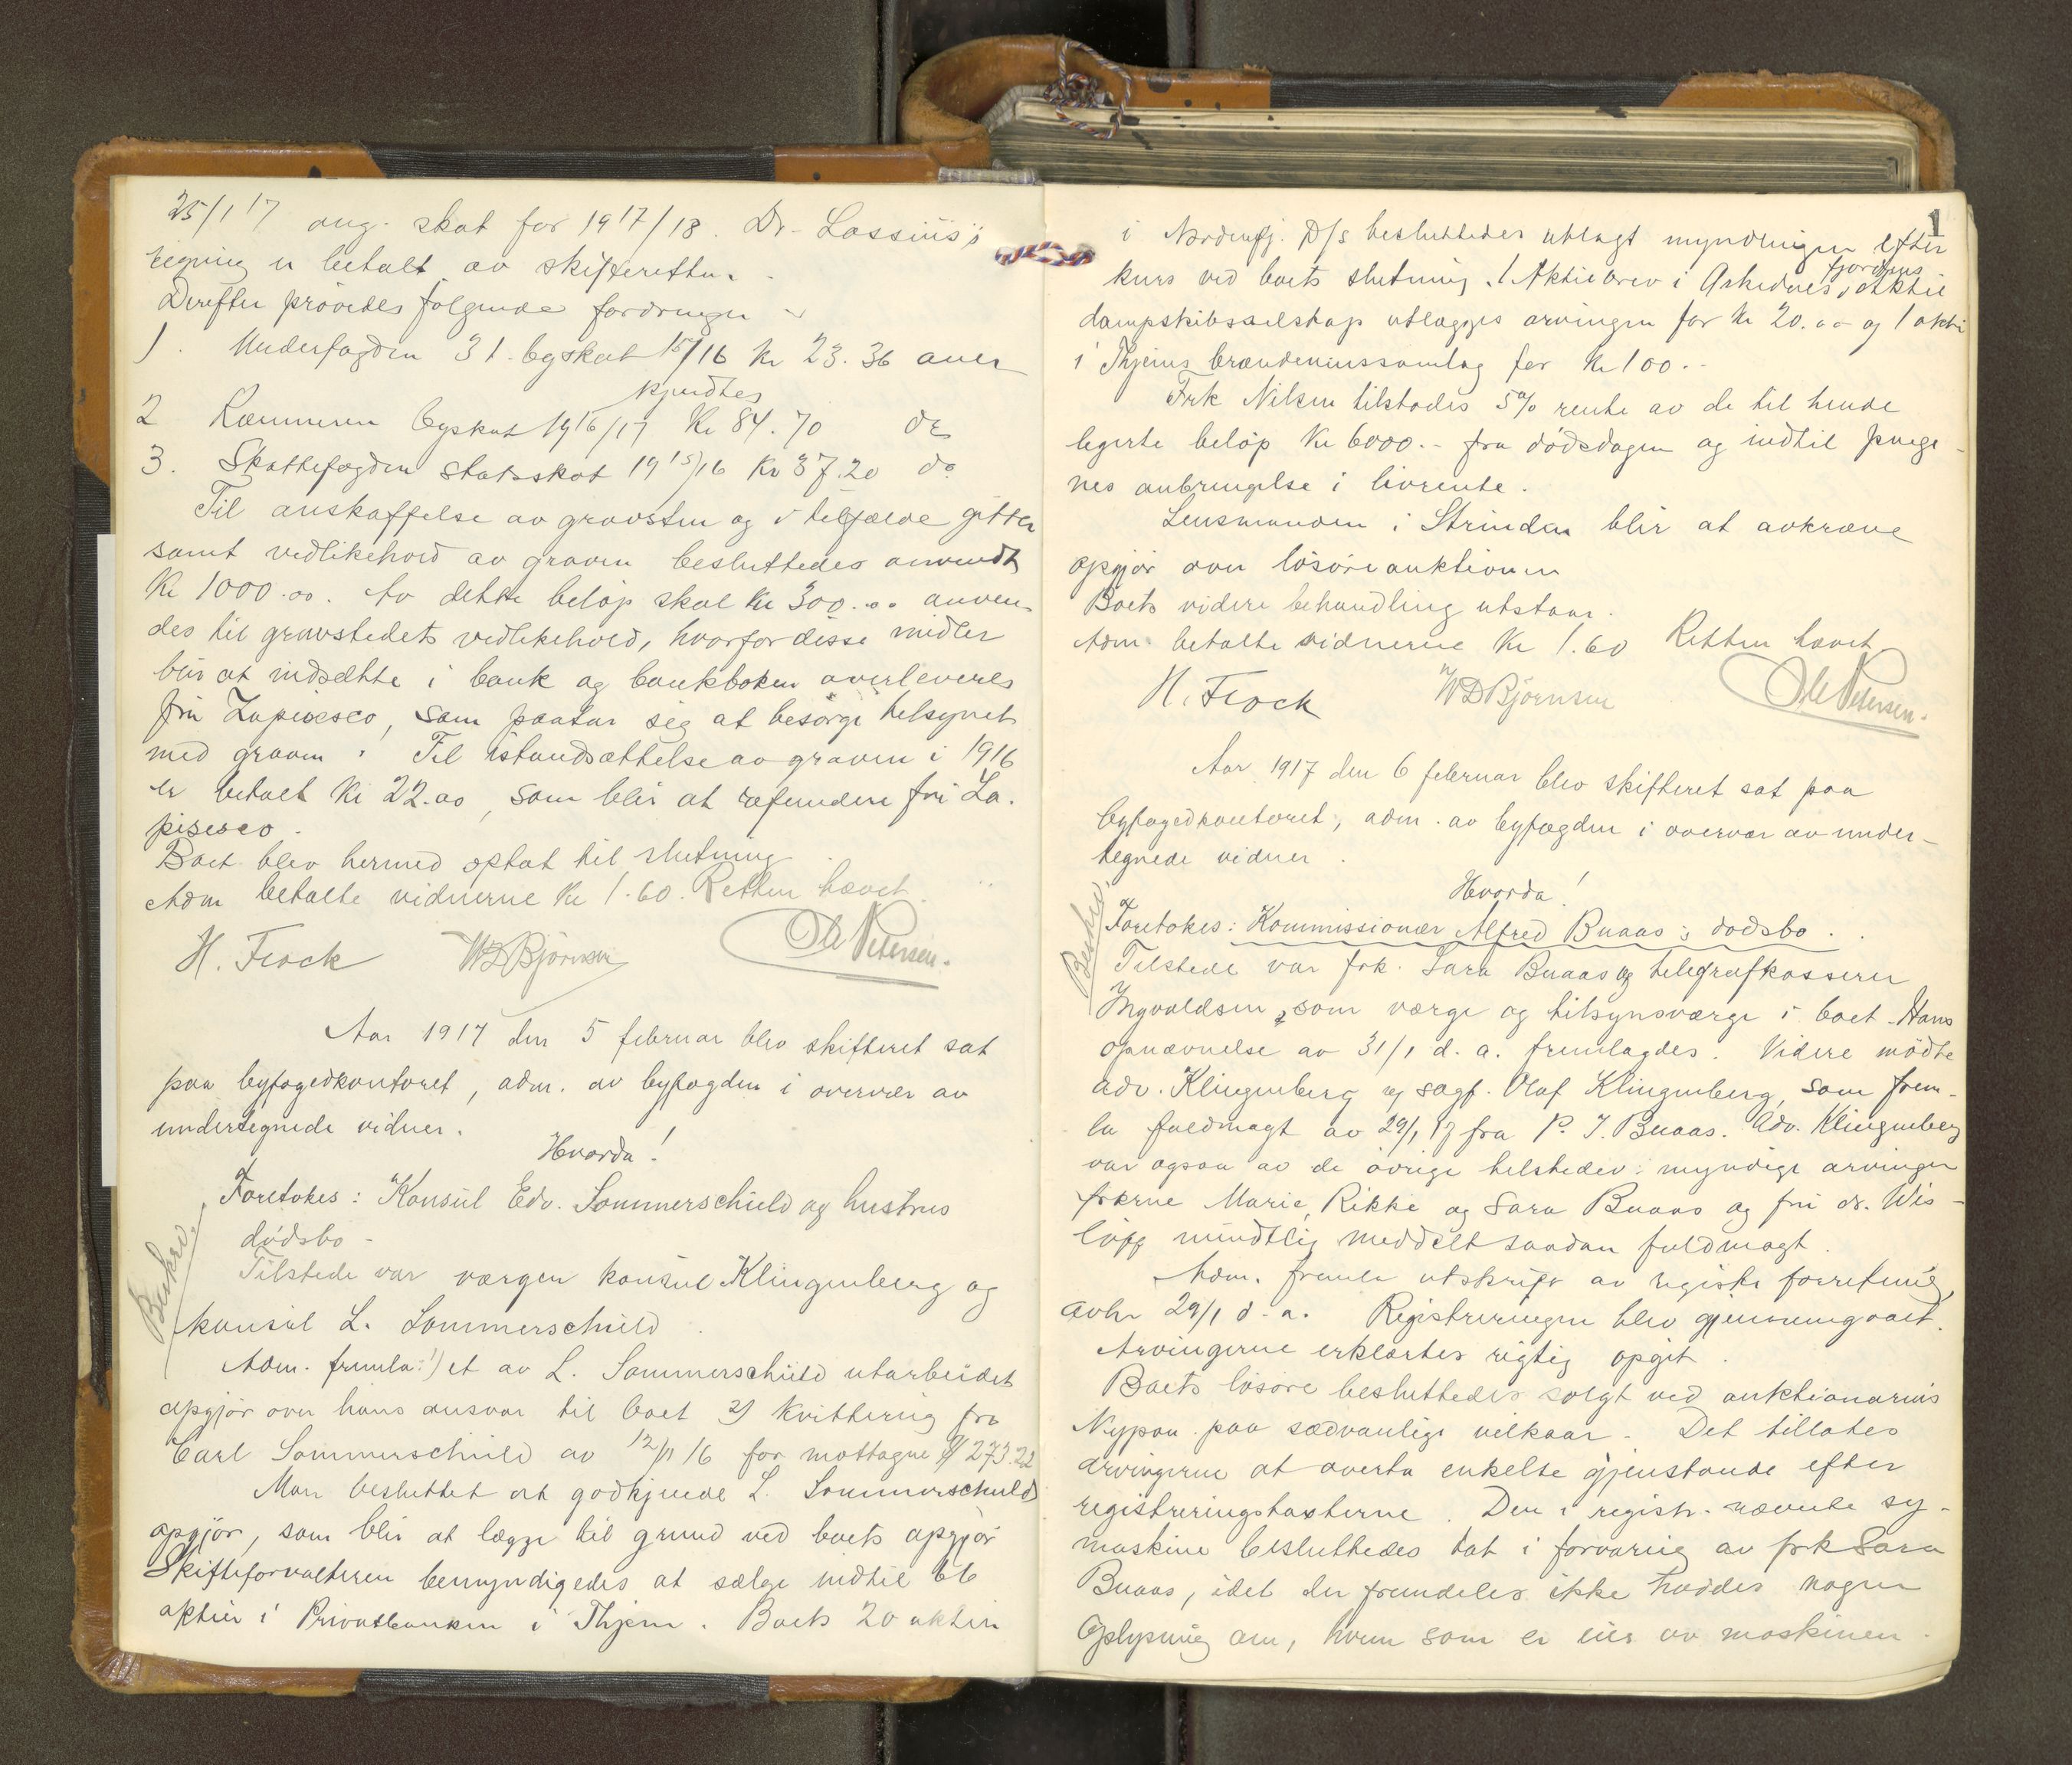 25/1 17 ang. skat for 1917/18. Dr. Lossius's
regning er betalt av skifteretten.
Derefter prøvedes følgende fordringer
1. Underfogden 31. byskat 15/16 kr 23.36 aner
kjendtes
2 Kæmneren byskat 1916/17 Kr 84.70 do
3. Skattefogden statsskat 1915/16 Kr 37.20 do
Til anskaffelse av gravsten og i tilfælde gitter
samt vedlikehold av graven besluttedes anvendt
Kr 1000.00. Av dette beløp skal kr 300.00 anven-
des til gravstedets vedlikehold, hvorfor disse midler
blir at indsætte i bank og bankboken overleveres
fru Lapisesco, som paatar sig at besørge tilsynet
med graven. Til istandsættelse av graven i 1916
er betalt kr 22.00, som blir at refundere fru La-
pisesco.
Boet blev hermed optat til slutning.
Adm betalte vidnerne kr 1.60. Retten hævet.
H. Frock WD Bjørnsen Ole Petersen.
Aar 1917 den 5 februar blev skifteret sat
paa byfogedkontoret, adm. av byfogden i overvær av
undertegnede vidner.
Hvorda!
Foretokes: Konsul Edv. Sommerschield og hustrus
dødsbo -
Beskrev.
Tilstede var værgen konsul Klingenberg og
konsul L. Sommerschield.
Adm. fremla: 1) et av L. Sommerschield utarbeidet
opgjør over hans ansvar til boet 2) Kvittering fra
Carl Sommerschield av 12/11 16 for mottagne 273.22
Man besluttet at godkjende L. Sommerschields
opgjør, som blir at lægge til grund ved boets opgjør
Skifteforvalteren bemyndigedes at sælge indtil 66
aktier i Privatbanken i Thjem. Boets 20 aktier
1
i Nordenfj. D/S besluttedes utlagt myndlingen efter
kurs ved boets slutning. 1 Aktiebrev iØrkedalsfjordens aktie
dampskibsselskap utlægges arvingen for kr 20.00 og 1 aktie
i Thjems brændevinssamlag for kr 100.-
Frk Nilsen tilstodes 5% rente av de til hende
legerte beløp kr 6000.- fra dødsdagen og indtil penge-
nes anbringelse i livrente.
Lensmanden i Strinden blir at avkræve
opgjør over løsøreauktionen
Boets videre behandling utstaar.
Adm. betalte vidnerne kr 1.60 Retten hævet
H. Frock WD Bjørnsen Ole Petersen.
Aar 1917 den 6 februar blev skifteret sat paa
byfogedkontoret, adm. av byfogden i overvær av under-
tegnede vidner.
Hvorda!
Beskrev
Foretokes: Kommissionær Alfred Buaas's dødsbo.
Tilstede var frk. Sara Buaas og telegrafkasserer
Ingvaldsen, som værge og tilsynsværge i boet. Hans
opnævnelse av 31/1 d. a. fremlagdes. Videre mødte
adv. Klingenberg og sagf. Olaf Klingenberg, som frem-
la fuldmagt av 29/1 17 fra P. J. Buaas. Adv. Klingenberg
var ogsaa av de øvrige tilstedev. myndige arvinger
frkrne Marie, Rikke og Sara Buaas og fru dr. Wis-
løff mundtlig meddelt saadan fuldmagt.
Adm. fremla utskrift av registr.forretning
avh. 29/1 d. a. Registreringen blev gjennemgaaet.
Arvingerne erklærtes rigtig opgit.
Boets løsøre besluttedes solgt ved auktionarius
Nypan paa sædvanlige vilkaar. Det tillates
arvingerne at overta enkelte gjenstande efter
registreringstaksterne. Den i registr. nævnte sy-
maskine besluttedes tat i forvaring av frk Sara
Buaas, idet der fremdeles ikke haddes nogen
oplysning om, hvem som er eier av maskinen.